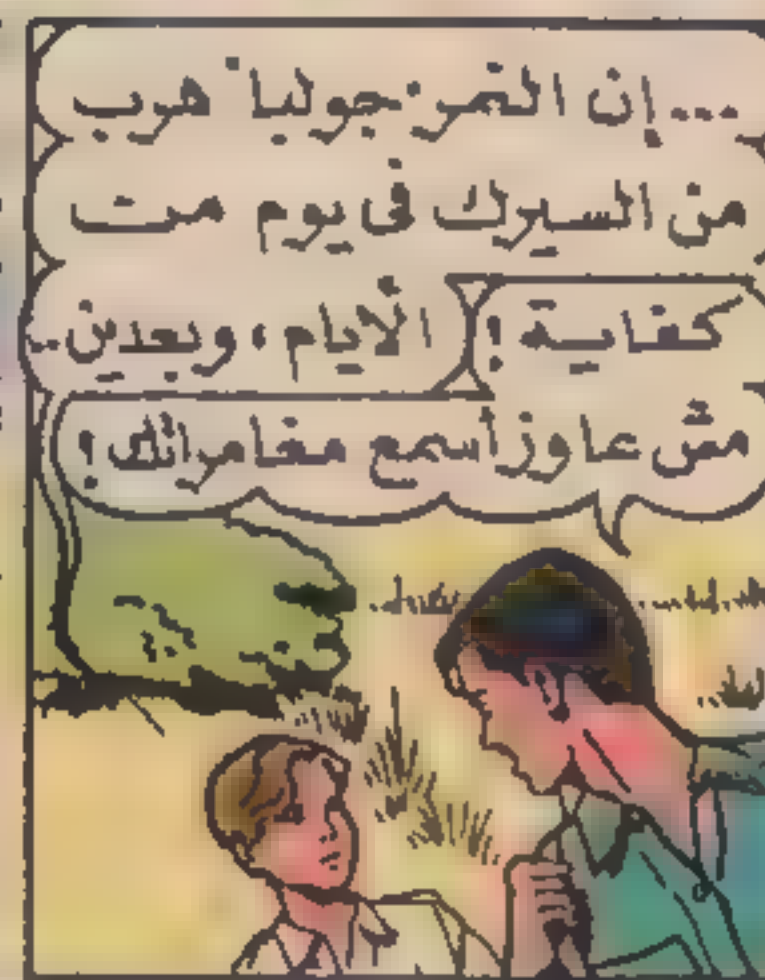 ...إن النمر "جوليا" هرب
من السيرك فى يوم مت
الأيام ، وبعدين..
كفاية !
مش عاوز أسمع مغامراتك !